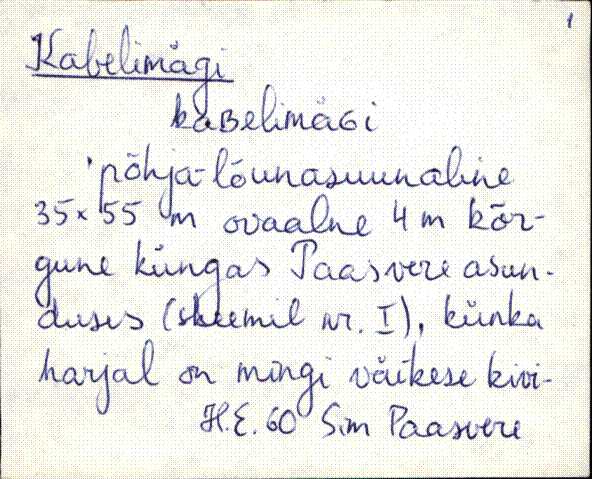 1
Kabelimägi
kaʙelimäɢi
'põhja-lõunasuunaline
35x55 m ovaalne 4 m kõr-
gune küngas Paasvere asun-
duses (skeemil nr. I), künka
harjal on mingi väikese kivi-
H.E. 60 Sim Paasvere